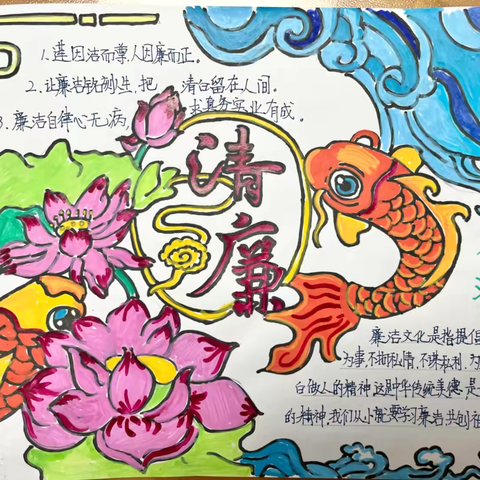 1.莲因洁而尊,人因廉而正。
2.让廉洁铭刻人生,把 清白留在人间。
3.廉洁自律心无病, 求真务实业有成。
清廉
廉洁文化是指提倡
为事不徇私情、不谋私利,为
白做人的精神,这财中华传统美德,是
的精神,我们从小就要学习廉洁,共创